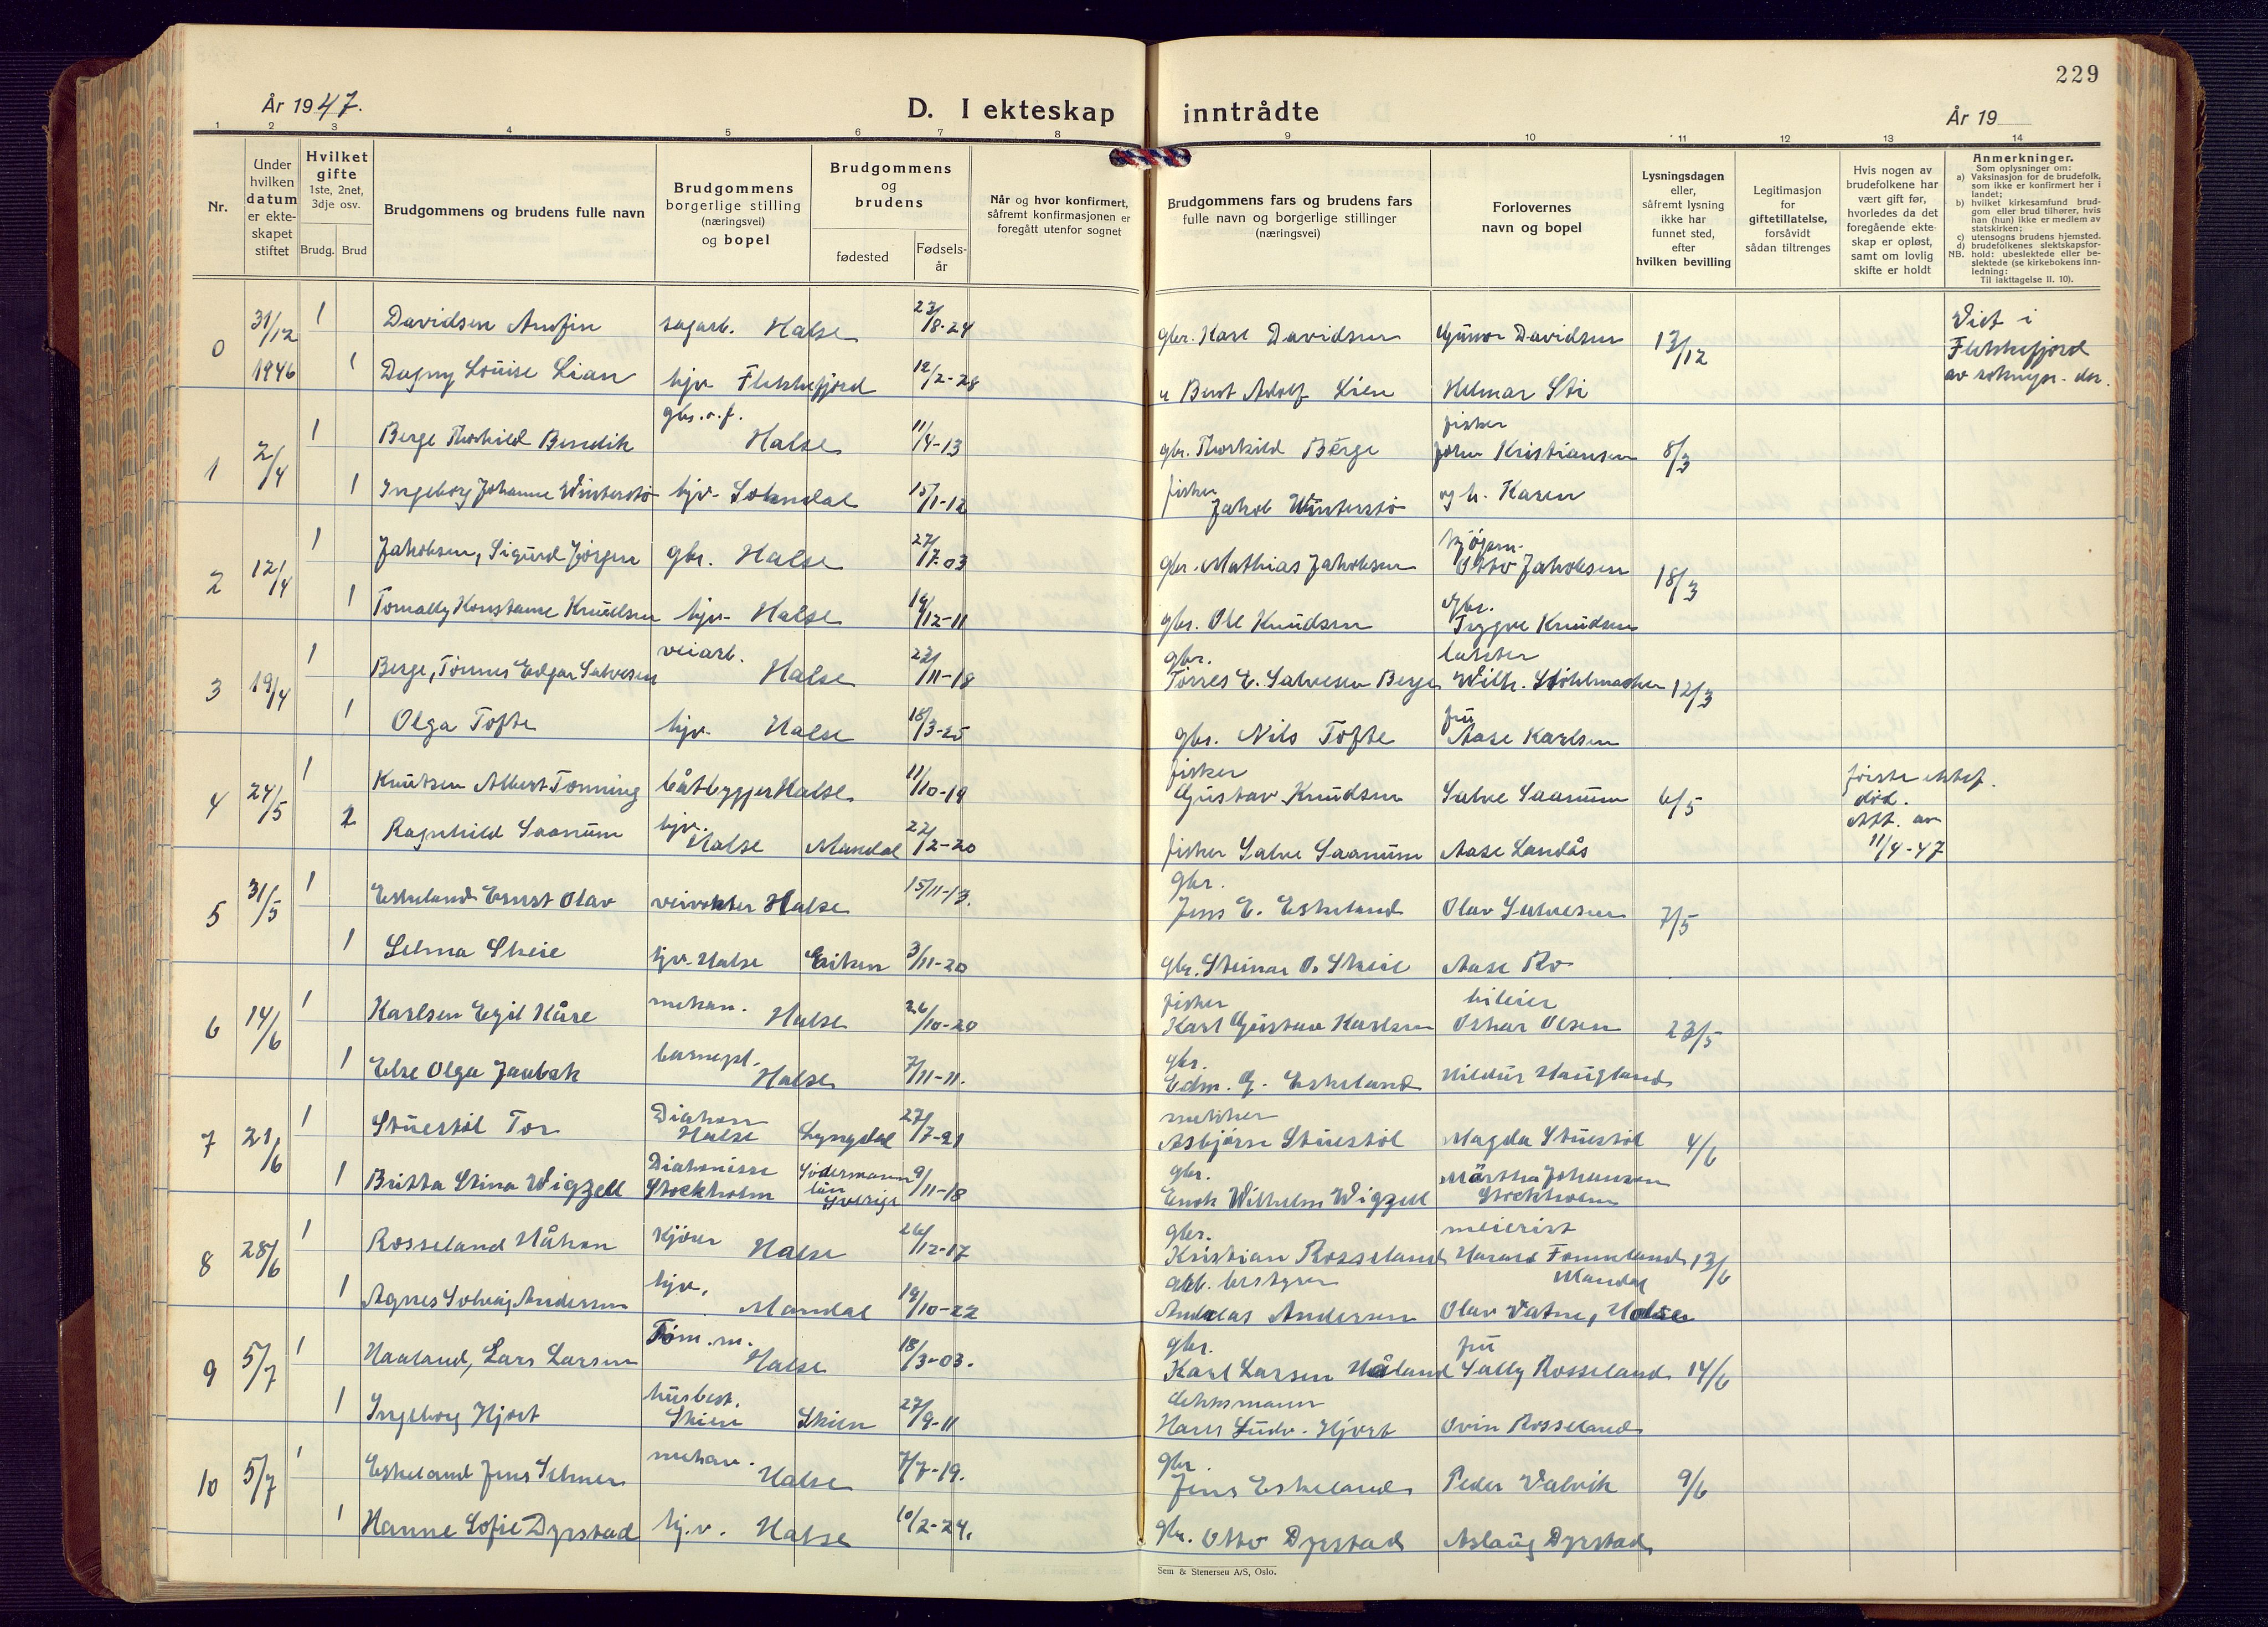 229
År 1947.
D. I ekteskap inntrådte
År 19
1 2 3 4 5 6 7 8 9 10 11 12 13 14
Nr.
Under hvilken datum er ekteskapet stiftet
Hvilket gifte 1ste, 2net, 3dje osv.
Brudg. Brud
Brudgommens og brudens fulle navn
Brudgommens borgerlige stilling (næringsvei) og bopel
Brudgommens og brudens
fødested
Fødselsår
Når og hvor konfirmert, såfremt konfirmasjonen er foregått utenfor sognet
Brudgommens fars og brudens fars fulle navn og borgerlige stillinger (næringsvei)
Forlovernes navn og bopel
Lysningsdagen eller, såfremt lysning ikke har funnet sted, efter hvilken bevilling
Legitimasjon for giftetillatelse, forsåvidt sådan tiltrenges
Hvis nogen av brudefolkene har vært gift før, hvorledes da det foregående ekteskap er opløst, samt om lovlig skifte er holdt
Anmerkninger.
Som oplysninger om:
a) Vaksinasjon for de brudefolk, som ikke er konfirmert her i landet;
b) hvilket kirkesamfund brudgom eller brud tilhører, hvis han (hun) ikke er medlem av statskirken;
c) utensogns brudens hjemsted.
d) brudefolkenes slektskapsforhold: ubeslektede eller beslektede (se kirkebokens innledning:
NB. Til iakttagelse II. 10).
0 31/12 1 Davidsen Arnfin sagarb. Halse 23/8-24 gbr. Karl Davidsen Gunvor Davidsen 13/12 Viet i Flekkefjord
1946 1 Dagny Louise Lian hjv. Flekkefjord 12/2-28 " Berst Adolf Lien Helmar Sti
1 2/4 1 Berge Thorkild Bendik gbr. o. f. Halse 11/4-13 gbr. Thorkild Berge fisker John Kristiansen 8/3
1 Ingeborg Johanne Vinterstø hjv. Sokndal 15/1-12 fisker Jakob Vinterstø og h. Karen
2 12/4 1 Jakobsen, Sigurd Jörgen gbr. Halse 27/7-03 gbr. Mathias Jakobsen Otto Jakobsen 18/3
1 Tomally Konstanse Knudsen hjv. Halse 19/12-11 gbr. Ole Knudsen gbr. Trygve Knudsen
3 19/4 1 Berge, Tönnes Edgar Salvesen veiarb. Halse 22/11-18 gbr. Torres E. Salvesen Berge Wilh. Stöhlmacher 12/3
1 Olga Tofte hjv. Halse 18/3-25 gbr. Nils Tofte fru Aase Karlsen
4 24/5 1 Knutsen Albert Tonning båtbygger Halse 11/10-19 fisker Gustav Knudsen Salve Saanum 6/5 første ektef. död. Att. av 11/4-47
2 Ragnhild Saanum hjv. Halse Mandal 22/2-20 fisker Salve Saanum Aase Landås
5 31/5 1 Eskeland Ernst Olav veivokter Halse 15/11-13. gbr. Jens E. Eskeland Olav Salvesen 7/5
1 Selma Skeie hjv. Halse Eiken 3/11-20 gbr. Steinar O. Skeie Aase Ro
6 14/6 1 Karlsen Egil Kåre mekan. Halse 26/10-20 fisker Karl Gustav Karlsen bileier Oskar Olsen 23/5
1 Else Olga Jaabæk barnepl. Halse 7/11-11. gbr. Edm. G. Eskeland Hildur Haugland
7 21/6 1 Stuestöl Tor Diakon Halse Lyngdal 27/7-21 snekker Asbjörn Stuestöl Magda Stuestöl 4/6
1 Britta Stina Wigzell Diakonisse Stockholm Södermannlän Sverige 9/11-18 gbr. Enok Wilhelm Wigzell Märtha Johansson Stockholm
8 28/6 1 Rosseland Håkon Halse 26/12-17 gbr. Kristian Rosseland meierist Harald Tommeland Mandal 13/6
1 Agnes Solveig Andersen hjv. Mandal 19/10-22 bestyrer Andreas Andersen Olav Vatne, Halse
9 5/7 1 Haaland, Lars Larsen Töm.m. Halse 18/3-03. gbr. Karl Larsen Håland fru Sally Rosseland 14/6
1 Ingeborg Hjort husbest. Skien Skien 27/9-11 dekksmann Hans Ludv. Hjort Ovin Rosseland
10 5/7 1 Eskeland Jens Selmer mekan. Halse 7/7-19. gbr. Jens Eskeland Peder Valvik 9/6
1 Hanne Sofie Dyrstad hj.v. Halse 10/2-24. gbr. Otto Dyrstad Aslaug Dyrstad
Sem & Stenersen A/S, Oslo.